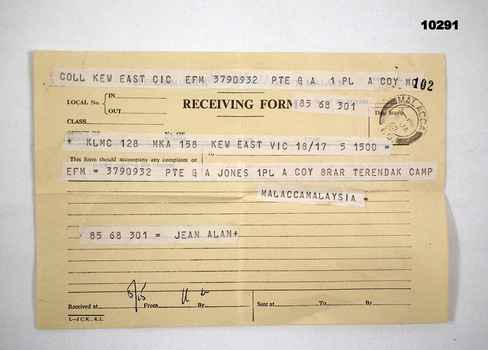 10291
COLL KEW EAST CIC EFM 3790932 PTE G A 1 PL A COY MQ 102
LOCAL No. { IN
OUT
RECEIVING FORM
85 68 301
MALACCA
Date Stamp
CLASS
+ KLMC 128 MKA 158 KEW EAST VIC 18/17 5 1500 =
This form should accompany any complaint or
to
EFM = 3790932 PTE G A JONES 1PL A COY 8RAR TERENDAK CAMP
MALACCAMALAYSIA =
85 68 301 = JEAN ALAN+
Received at From By Sent at To By
L—J.C.K., K.L.